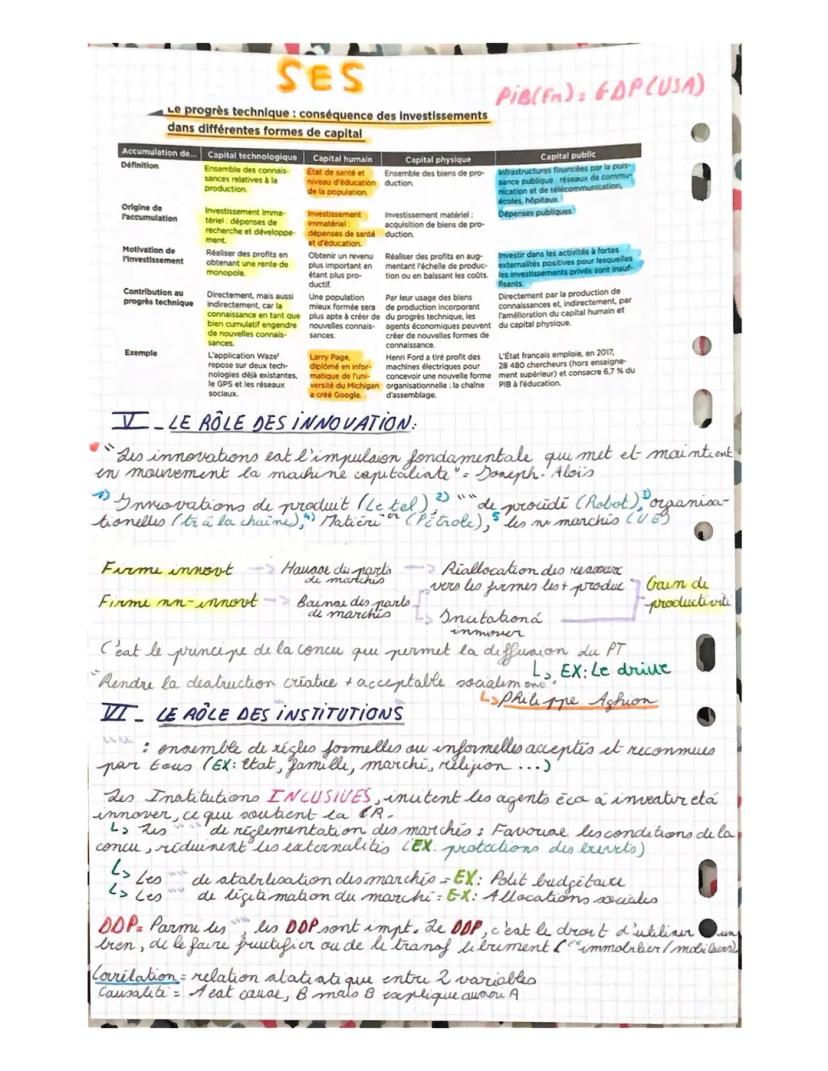 SES
PiB(Fn) = GDP(USA)
Le progrès technique : conséquence des investissements
dans différentes formes de capital
Accumulation de... Capital technologique Capital humain Capital physique Capital public
Définition
Ensemble des connais-
sances relatives à la
production.
État de santé et
niveau d'éducation
de la population.
Ensemble des biens de pro-
duction.
Infrastructures financées par la puis-
sance publique : réseaux de commu-
nication et de télécommunication,
écoles, hôpitaux.
Origine de
l'accumulation
Investissement imma-
tériel : dépenses de
recherche et développe-
ment.
Investissement
immatériel :
dépenses de santé
et d'éducation.
Investissement matériel :
acquisition de biens de pro-
duction.
Dépenses publiques
Motivation de
l'investissement
Réaliser des profits en
obtenant une rente de
monopole.
Obtenir un revenu
plus important en
étant plus pro-
ductif.
Réaliser des profits en aug-
mentant l'échelle de produc-
tion ou en baissant les coûts.
Investir dans les activités à fortes
externalités positives pour lesquelles
les investissements privés sont insuf-
fisants.
Contribution au
progrès technique
Directement, mais aussi
indirectement, car la
connaissance en tant que
bien cumulatif engendre
de nouvelles connais-
sances.
Une population
mieux formée sera
plus apte à créer de
nouvelles connais-
sances.
Par leur usage des biens
de production incorporant
du progrès technique, les
agents économiques peuvent
créer de nouvelles formes de
connaissance.
Directement par la production de
connaissances et, indirectement, par
l'amélioration du capital humain et
du capital physique.
Exemple
L'application Waze
repose sur deux tech-
nologies déjà existantes,
le GPS et les réseaux
sociaux.
Larry Page,
diplômé en infor-
matique de l'uni-
versité du Michigan
a créé Google.
Henri Ford a tiré profit des
machines électriques pour
concevoir une nouvelle forme
organisationnelle : la chaîne
d'assemblage.
L'État français emploie, en 2017,
28 480 chercheurs (hors enseigne-
ment supérieur) et consacre 6,7 % du
PIB à l'éducation.
V - LE RÔLE DES INNOVATION:
"Les innovations est l'impulsion fondamentale qui met et maintient
en mouvement la machine capitaliste" = Joseph. Aloïs
1) Innovations de produit (Le tel), 2) "" de procédé (Robot), 3) organisa-
tionelles (tr à la chaîne), 4) Matière (Pétrole), 5 les nv marchés (UE)
Firme innovt → Hausse du parts de marchés → Réallocation des ressour vers les firmes les + produc
Gain de productivité
Firme nn-innovt → Baisse des parts de marchés ↳ Incitation à innover
C'est le principe de la concu qui permet la diffusion du PT
↳ EX: Le drive
"Rendre la destruction créatice + acceptable socialement".
↳ Philippe Aghion
VI - LE RÔLE DES iNSTITUTIONS
"" : ensemble de règles formelles ou informelles acceptés et reconnues
par tous (EX: Etat, famille, marché, religion ...)
Les Institutions INCLUSIVES, incitent les agents éco à investir et à
innover, ce qui soutient la CR.
↳ Les "" de réglementation des marchés : Favorise les conditions de la
concu, réduisent les externalités (EX: protections des brevets)
↳ Les "" de stabilisation des marchés = EX: Polit budgétaire
↳ Les "" de légitimation du marché = EX: Allocations sociales
DDP= Parmi les "", les DDP sont impt. Le DDP, c'est le droit d'utiliser un
bien, de le faire fructifier ou de le transf librement (ex immobilier/mobiliers)
Corrélation = relation statistique entre 2 variables
Causalité = A est cause, B mais B explique aussi A